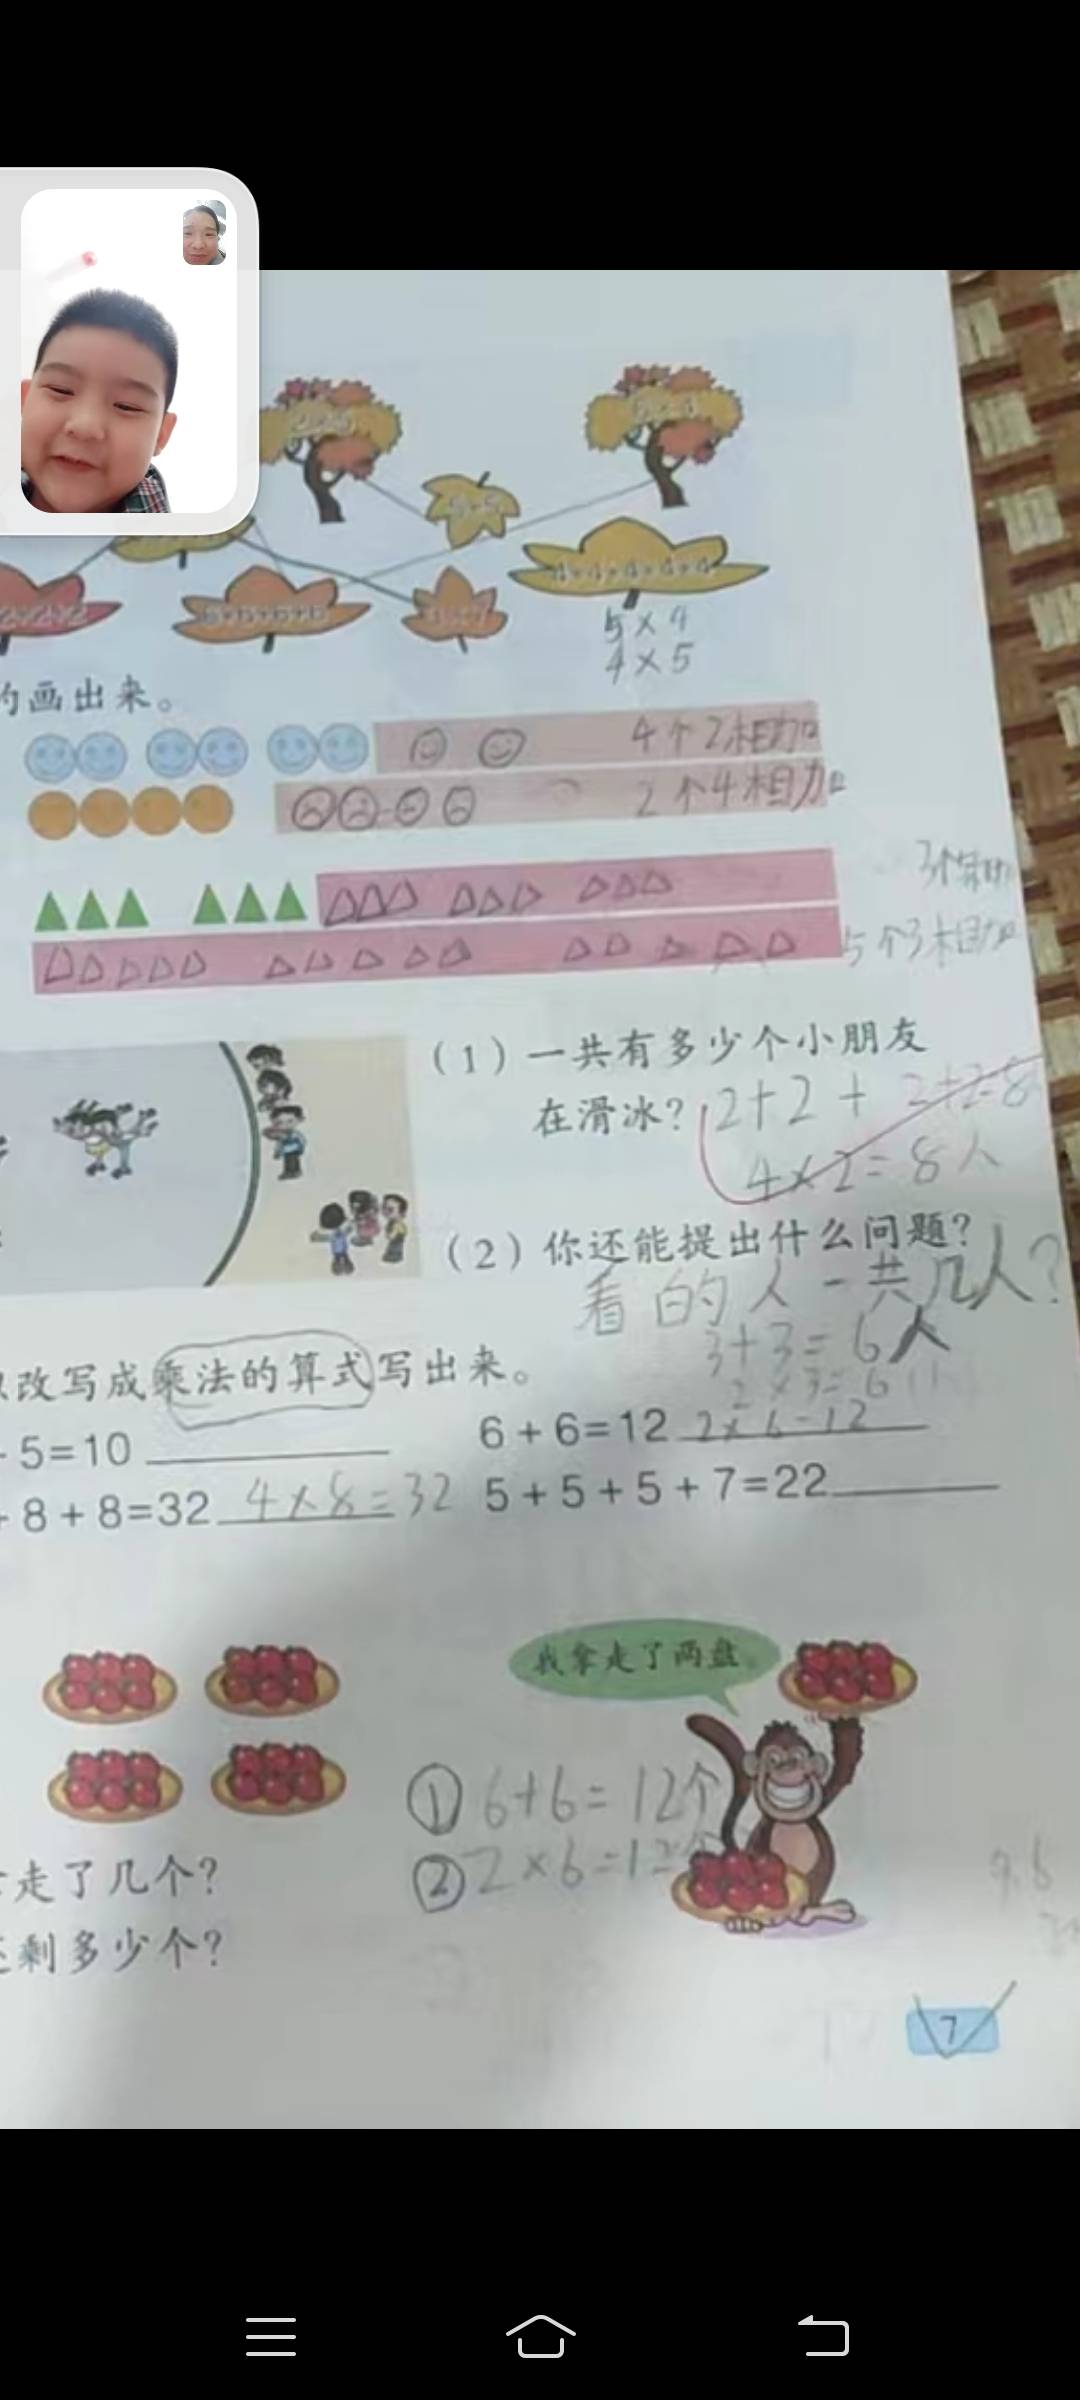 4+4+4+4+4
5×4
4×5
的画出来。
4个2相加
2个4相加
5个3相加
(1)一共有多少个小朋友
在滑冰?
2+2+2+2=8
4×2=8人
(2)你还能提出什么问题?
看的人一共几人?
3+3=6人
2×3=6
改写成乘法的算式写出来。
5=10
6+6=12 2×6=12
+8+8=32 4×8=32
5+5+5+7=22
我拿走了两盘。
①6+6=12个
②2×6=12个
走了几个?
还剩多少个?
7